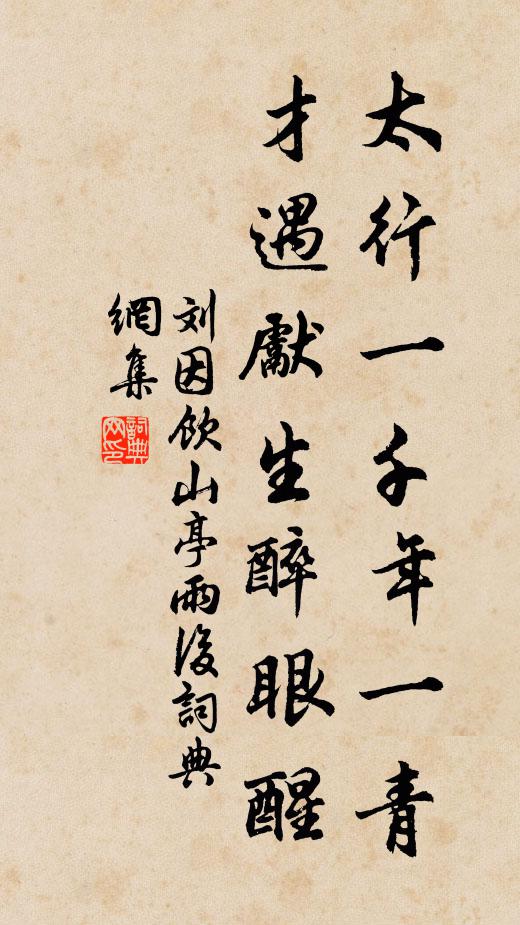 太行一千年一青
才遇獻生醉眼醒
刘因飲山亭雨後詞典
網集
詞典網印